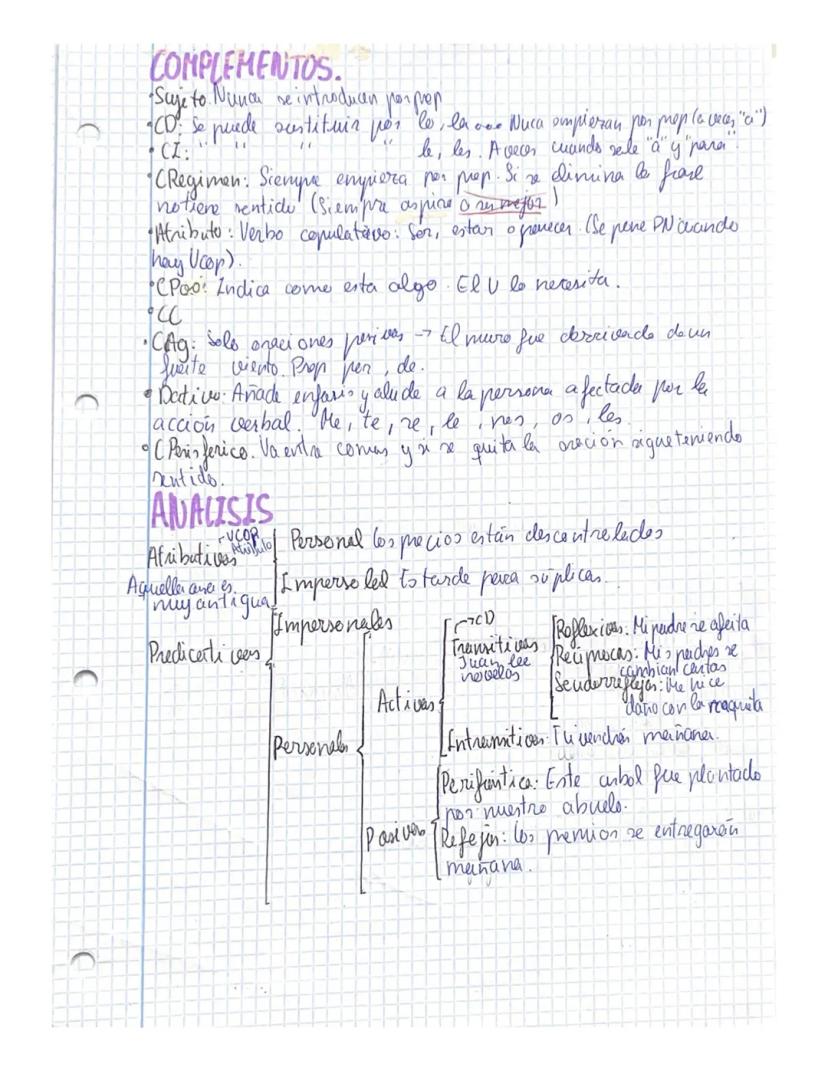 COMPLEMENTOS.
·Sujeto. Nunca se introducen por prep
·CD: Se puede sustituir por lo, la ... Nuca empiezan por prep (a veces "a")
·CI: " " " " le, les. A veces cuando sele "a" y "para".
·CRegimen: Siempre empieza por prep. Si se elimina la frase
no tiene sentido (Siempre aspira a ser mejor)
·Atributo: Verbo copulativo: Ser, estar o parecer. (Se pone PN cuando
hay Vcop).
·CPvo: Indica como esta algo. El V lo necesita.
·CC
·CAg: Solo oraciones pasivas → El muro fue derrivado de un
fuerte viento. Prep por, de.
·Dativo: Añade enfasis y alude a la persona afectada por la
acción verbal. Me, te, se, le, nos, os, les.
·C Perisferico. Va entre comas y si se quita la oración sigue teniendo
sentido.
ANALISIS
Atributivas → VCOP Atributo
Personal los precios están descontrolados
Aquella ana es muy antigua
Impersonal Es tarde para súplicas.
Predicativas
Impersonales
Personales
Activas
→CD
Transitivas
Juan lee
novelas
Reflexivas: Mi padre se afeita
Reciprocas: Mis padres se
cambian cartas
Seudorreflejas: Me hice
daño con la maquita
Intransitivas: Tu vendrás mañana.
Pasivas
Perifrástica: Este arbol fue plantado
por nuestro abuelo.
Refejas: los premios se entregarán
mañana.